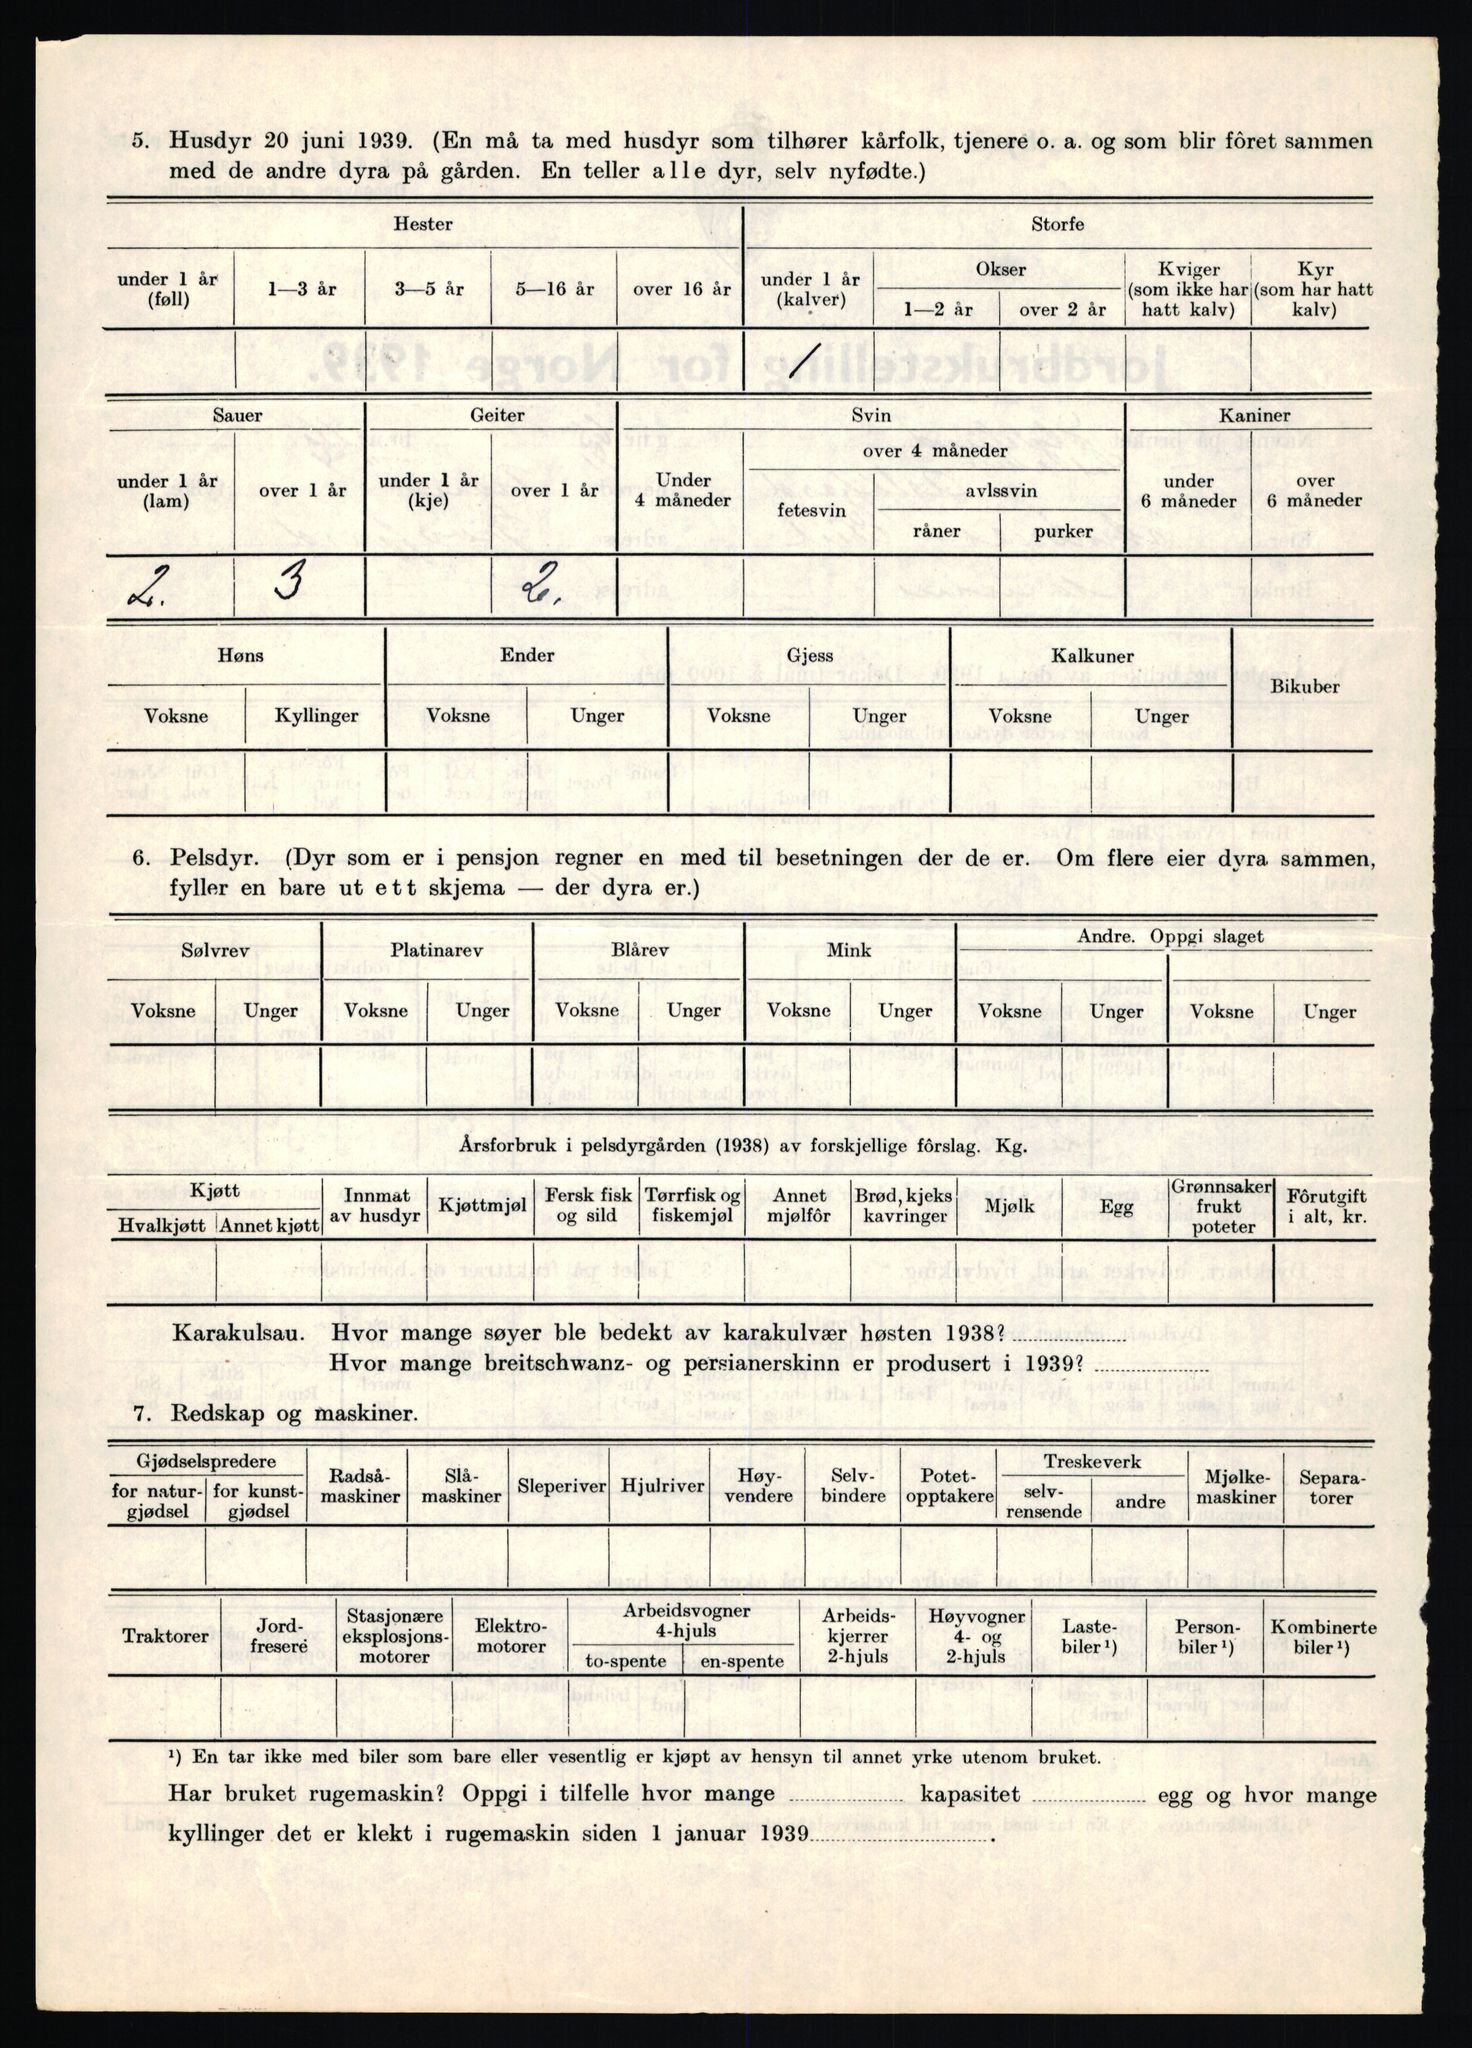 5. Husdyr 20 juni 1939. (En må ta med husdyr som tilhører kårfolk, tjenere o. a. og som blir fôret sammen
med de andre dyra på gården. En teller alle dyr, selv nyfødte.)
Hester Storfe
under 1 år (føll) 1—3 år 3—5 år 5—16 år over 16 år under 1 år (kalver) Okser 1—2 år over 2 år Kviger (som ikke har hatt kalv) Kyr (som har hatt kalv)
1
Sauer Geiter Svin Kaniner
under 1 år (lam) over 1 år under 1 år (kje) over 1 år Under 4 måneder over 4 måneder fetesvin avlssvin råner purker under 6 måneder over 6 måneder
2. 3 2.
Høns Ender Gjess Kalkuner Bikuber
Voksne Kyllinger Voksne Unger Voksne Unger Voksne Unger
6. Pelsdyr. (Dyr som er i pensjon regner en med til besetningen der de er. Om flere eier dyra sammen,
fyller en bare ut ett skjema — der dyra er.)
Sølvrev Platinarev Blårev Mink Andre. Oppgi slaget
Voksne Unger Voksne Unger Voksne Unger Voksne Unger Voksne Unger Voksne Unger
Årsforbruk i pelsdyrgården (1938) av forskjellige fôrslag. Kg.
Kjøtt Hvalkjøtt Annet kjøtt Innmat av husdyr Kjøttmjøl Fersk fisk og sild Tørrfisk og fiskemjøl Annet mjølfôr Brød, kjeks kavringer Mjølk Egg Grønnsaker frukt poteter Fôrutgift i alt, kr.
Karakulsau. Hvor mange søyer ble bedekt av karakulvær høsten 1938?
Hvor mange breitschwanz- og persianerskinn er produsert i 1939?
7. Redskap og maskiner.
Gjødselspredere for natur-gjødsel for kunst-gjødsel Radså-maskiner Slå-maskiner Sleperiver Hjulriver Høy-vendere Selv-bindere Potet-opptakere Treskeverk selv-rensende andre Mjølke-maskiner Separa-torer
Traktorer Jord-fresere Stasjonære eksplosjons-motorer Elektro-motorer Arbeidsvogner 4-hjuls to-spente en-spente Arbeids-kjerrer 2-hjuls Høyvogner 4- og 2-hjuls Laste-biler ¹) Person-biler ¹) Kombinerte biler ¹)
¹) En tar ikke med biler som bare eller vesentlig er kjøpt av hensyn til annet yrke utenom bruket.
Har bruket rugemaskin? Oppgi i tilfelle hvor mange kapasitet egg og hvor mange
kyllinger det er klekt i rugemaskin siden 1 januar 1939 .